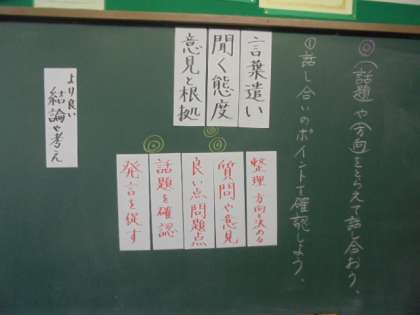 ◎話題や方向をとらえて話し合おう。
①話し合いのポイントを確認しよう。
言葉遣い
聞く態度
意見と根拠
整理 方向を決める
質問や意見
良い点問題点
話題を確認
発言を促す
より良い
結論や考え